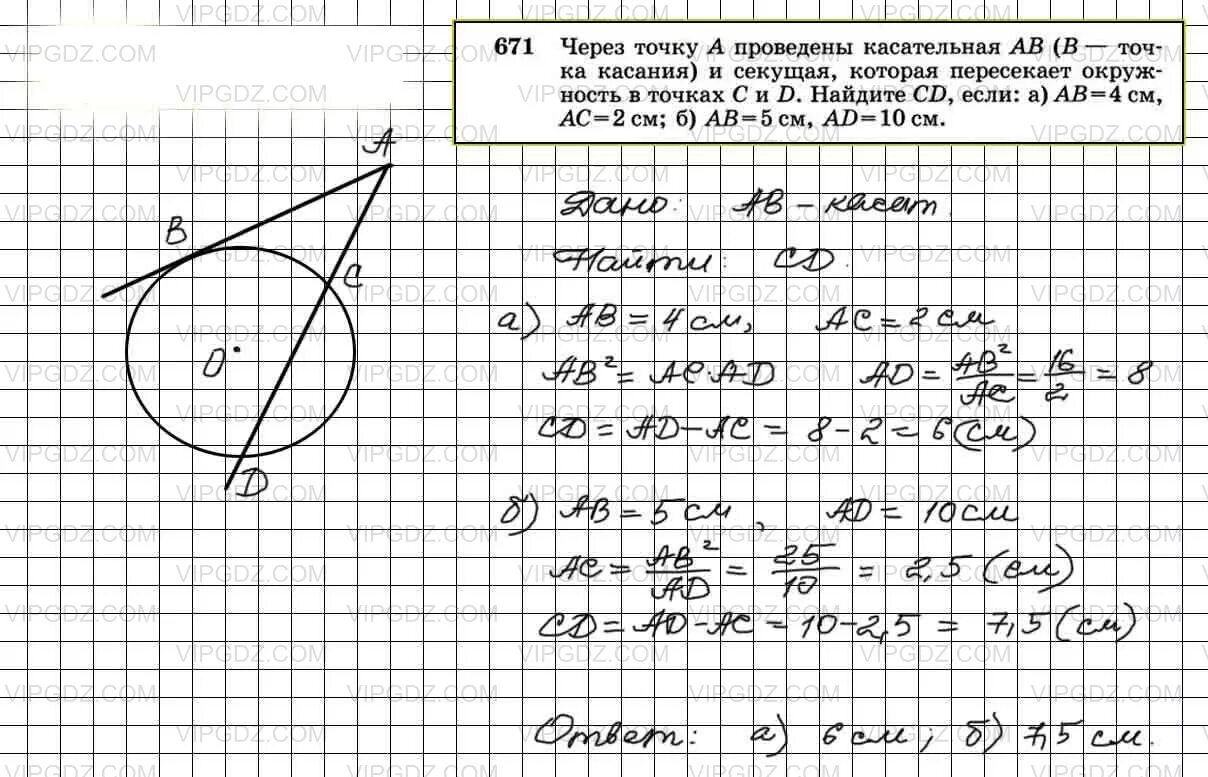 671 Через точку A проведены касательная AB (B — точ-
ка касания) и секущая, которая пересекает окруж-
ность в точках C и D. Найдите CD, если: а) AB=4 см,
AC=2 см; б) AB=5 см, AD=10 см.
A
B
C
O
D
Дано: AB – касат.
Найти: CD.
а) AB = 4 см, AC = 2 см
AB² = AC·AD AD = AB²/AC = 16/2 = 8
CD = AD – AC = 8 – 2 = 6 (см)
б) AB = 5 см, AD = 10 см
AC = AB²/AD = 25/10 = 2,5 (см)
CD = AD – AC = 10 – 2,5 = 7,5 (см)
Ответ: а) 6 см; б) 7,5 см.
VIPGDZ.COM